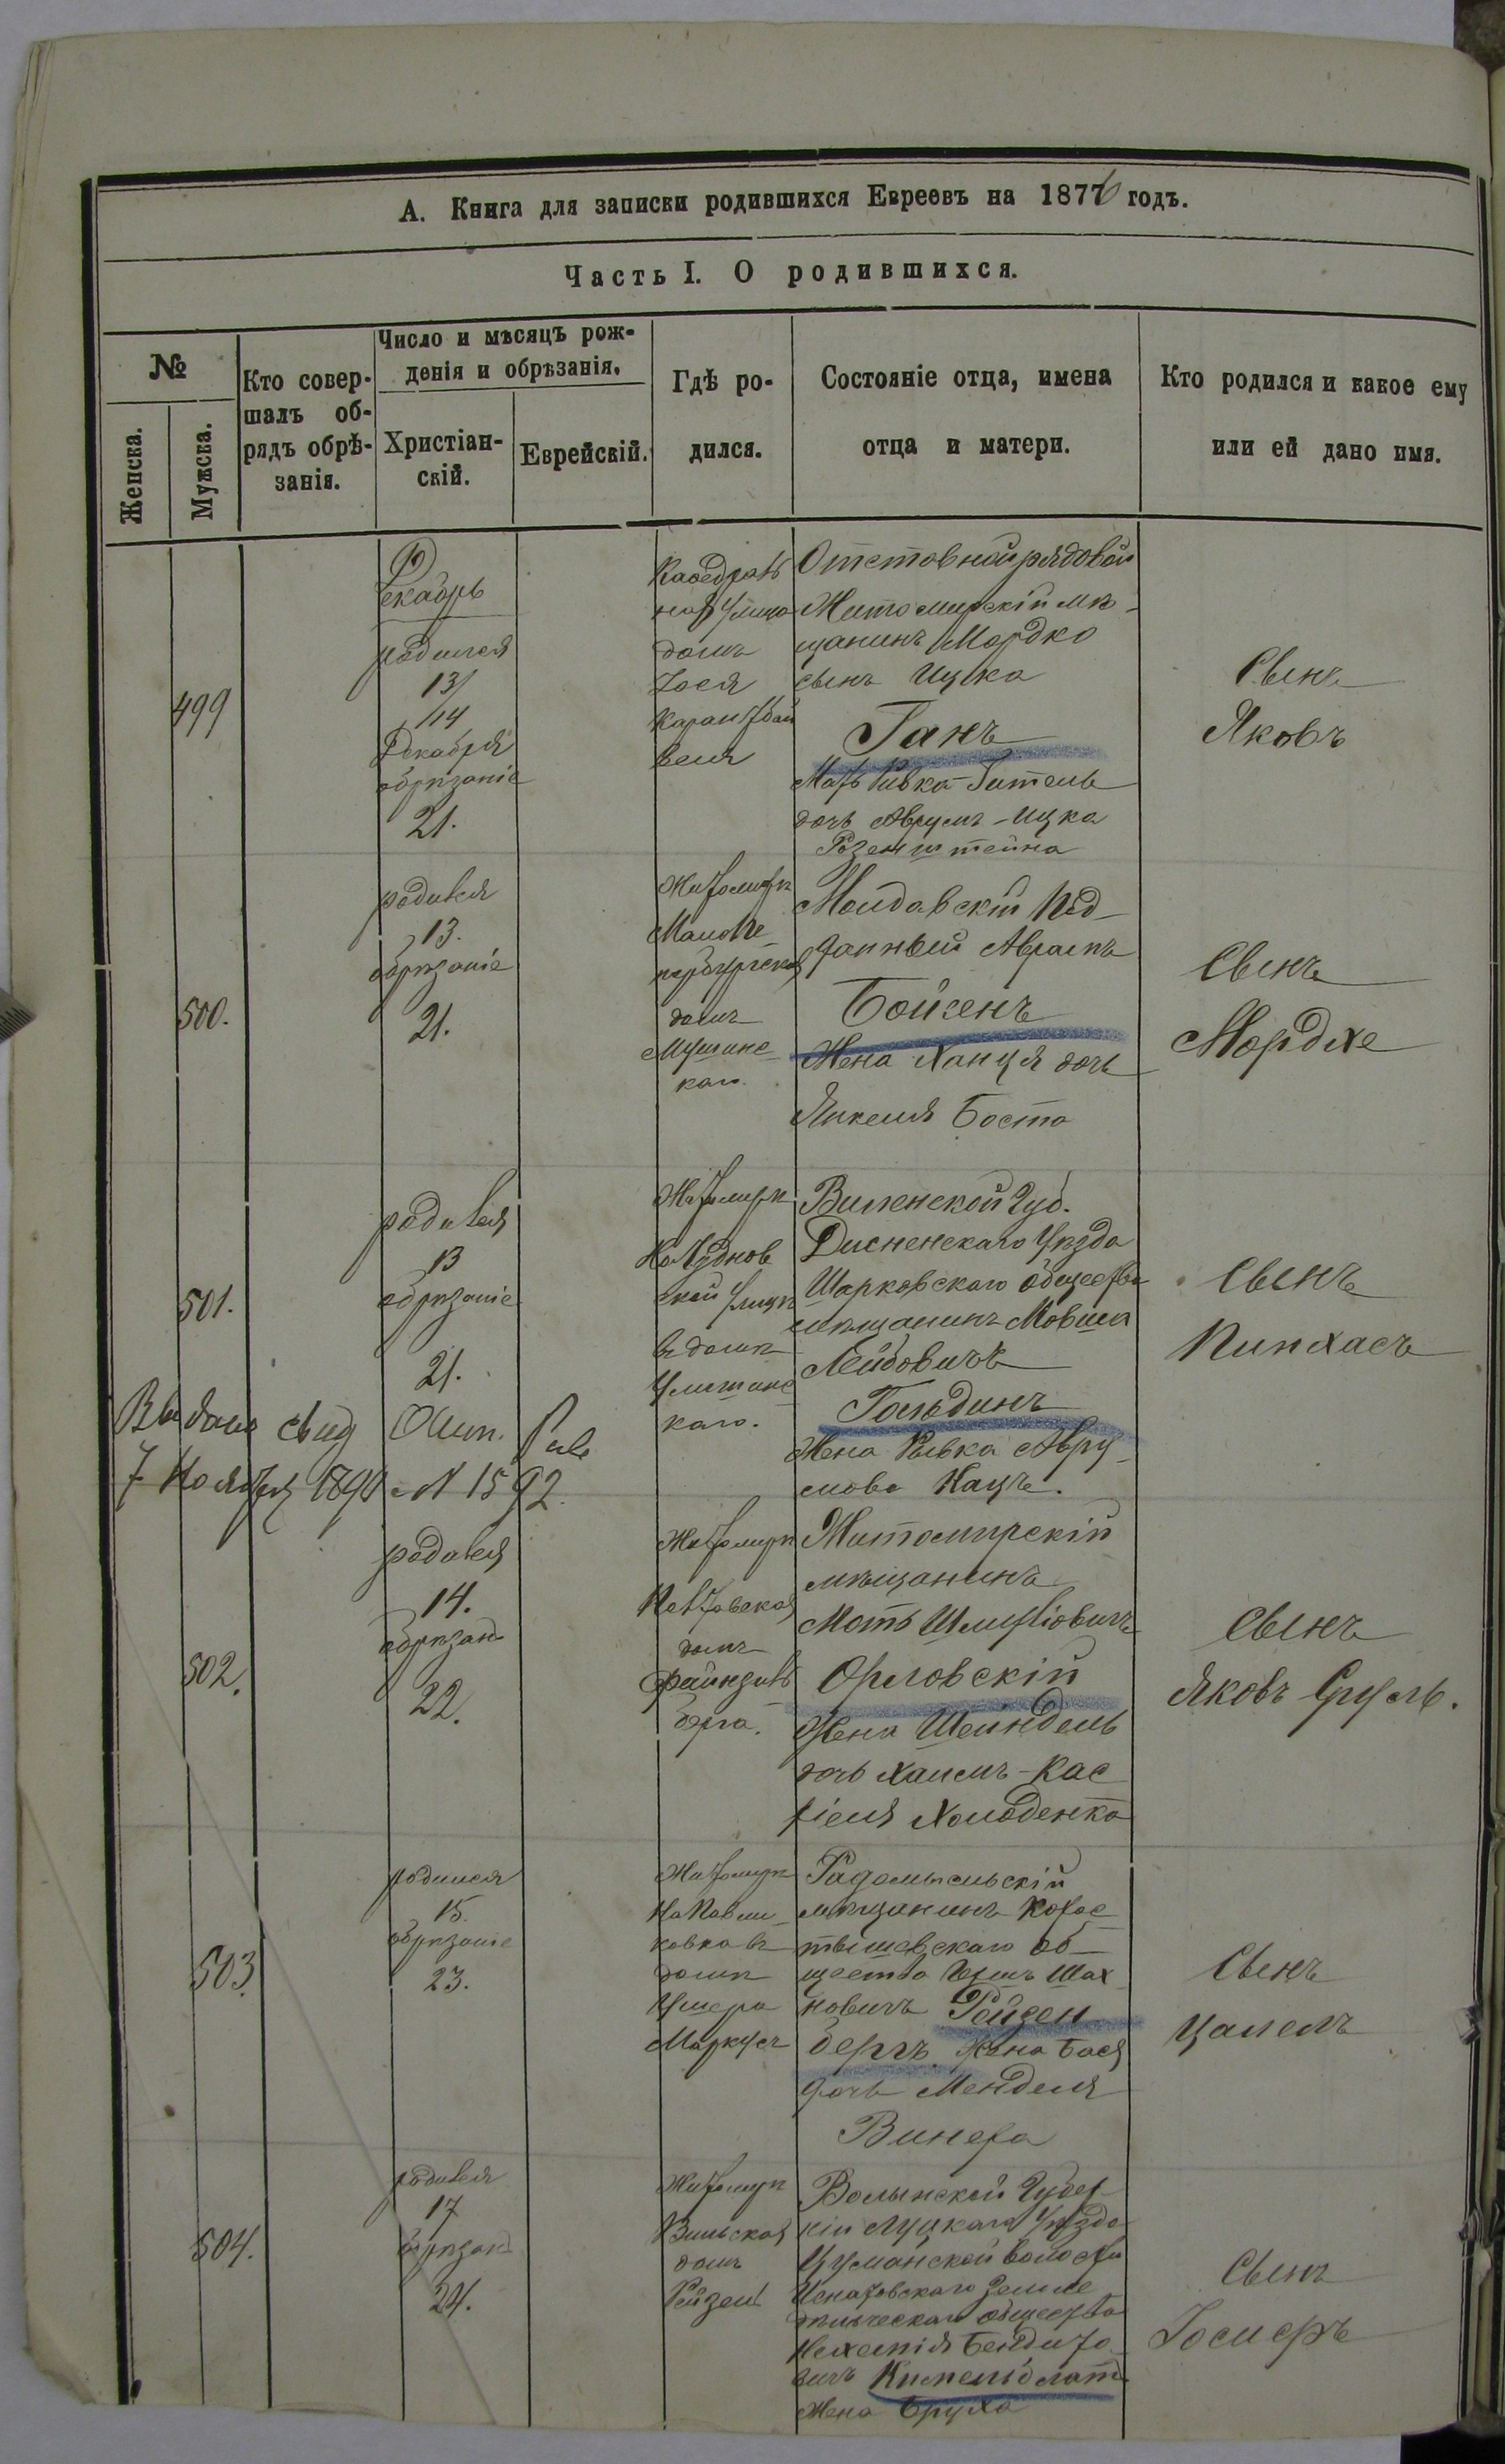 А. Книга для записки родившихся Евреевъ на 1876 годъ.
Часть I. О родившихся.
№
Женска.
Мужска.
Кто совер-
шалъ об-
рядъ обрѣ-
занія.
Число и мѣсяцъ рож-
денія и обрѣзанія.
Христіан-
скій.
Еврейскій.
Гдѣ ро-
дился.
Состояніе отца, имена
отца и матери.
Кто родился и какое ему
или ей дано имя.
499
Декабрь
родился
13/
/14
Декабря
обрѣзаніе
21.
Каѳедраль
ная улица
домъ
Іося
Отставной рядовой
Житомирскій мѣ-
щанинъ Мордко
сынъ Ицка
Ганъ
Мать Ривка-Гитель
дочь Аврумъ-Ицка
Розенштейна
Сынъ
Яковъ
500.
родился
13.
обрѣзаніе
21.
Житомирѣ
Мало Пе
тербургская
домъ
каго.
Молдавскій Под-
данный Абрамъ
Бойсенъ
Жена Ханця дочь
Янкеля Боста
Сынъ
Мордхе
501.
родился
13
обрѣзаніе
21.
Житомирѣ
На Чуднов
ской улицѣ
въ домѣ
каго.
Виленской Губ.
Дисненскаго Уѣзда
Шарковскаго общества
мѣщанинъ Мовша
Лейбовичъ
Гольдинъ
Жена Ривка Авру-
мова Кацъ.
Сынъ
Пинхасъ
Выдано свид
7 Ноября 1890 № 1592.
502.
родился
14.
обрѣзан
22.
Житомирѣ
домъ
Файнзиль
берга.
Житомирскій
мѣщанинъ
Моть Шмуліовичъ
Орловскій
Жена Шейндель
дочь Хаимъ-Кас
ріеля Холоденко
Сынъ
Яковъ Сруль.
503.
родился
15.
обрѣзаніе
23.
Житомирѣ
На Павли-
ковка въ
домѣ
Ушера
Маркусъ
Радомысльскій
мѣщанинъ Корос-
тышевскаго об-
щества Шах
новичъ Рейзен
бергъ. Жена Бася
дочь Менделя
Винера
Сынъ
Цалелъ
504.
родился
17
обрѣзан
24.
Житомирѣ
Вильская
домъ
Рейзель
Волынской Губер-
ніи Луцкаго Уѣзда
Цуманской волости
Игнатовскаго Землле
дѣльческаго общества
Нехемія
вичъ Кимельблатъ
Жена Бруха
Сынъ
Іосиеръ